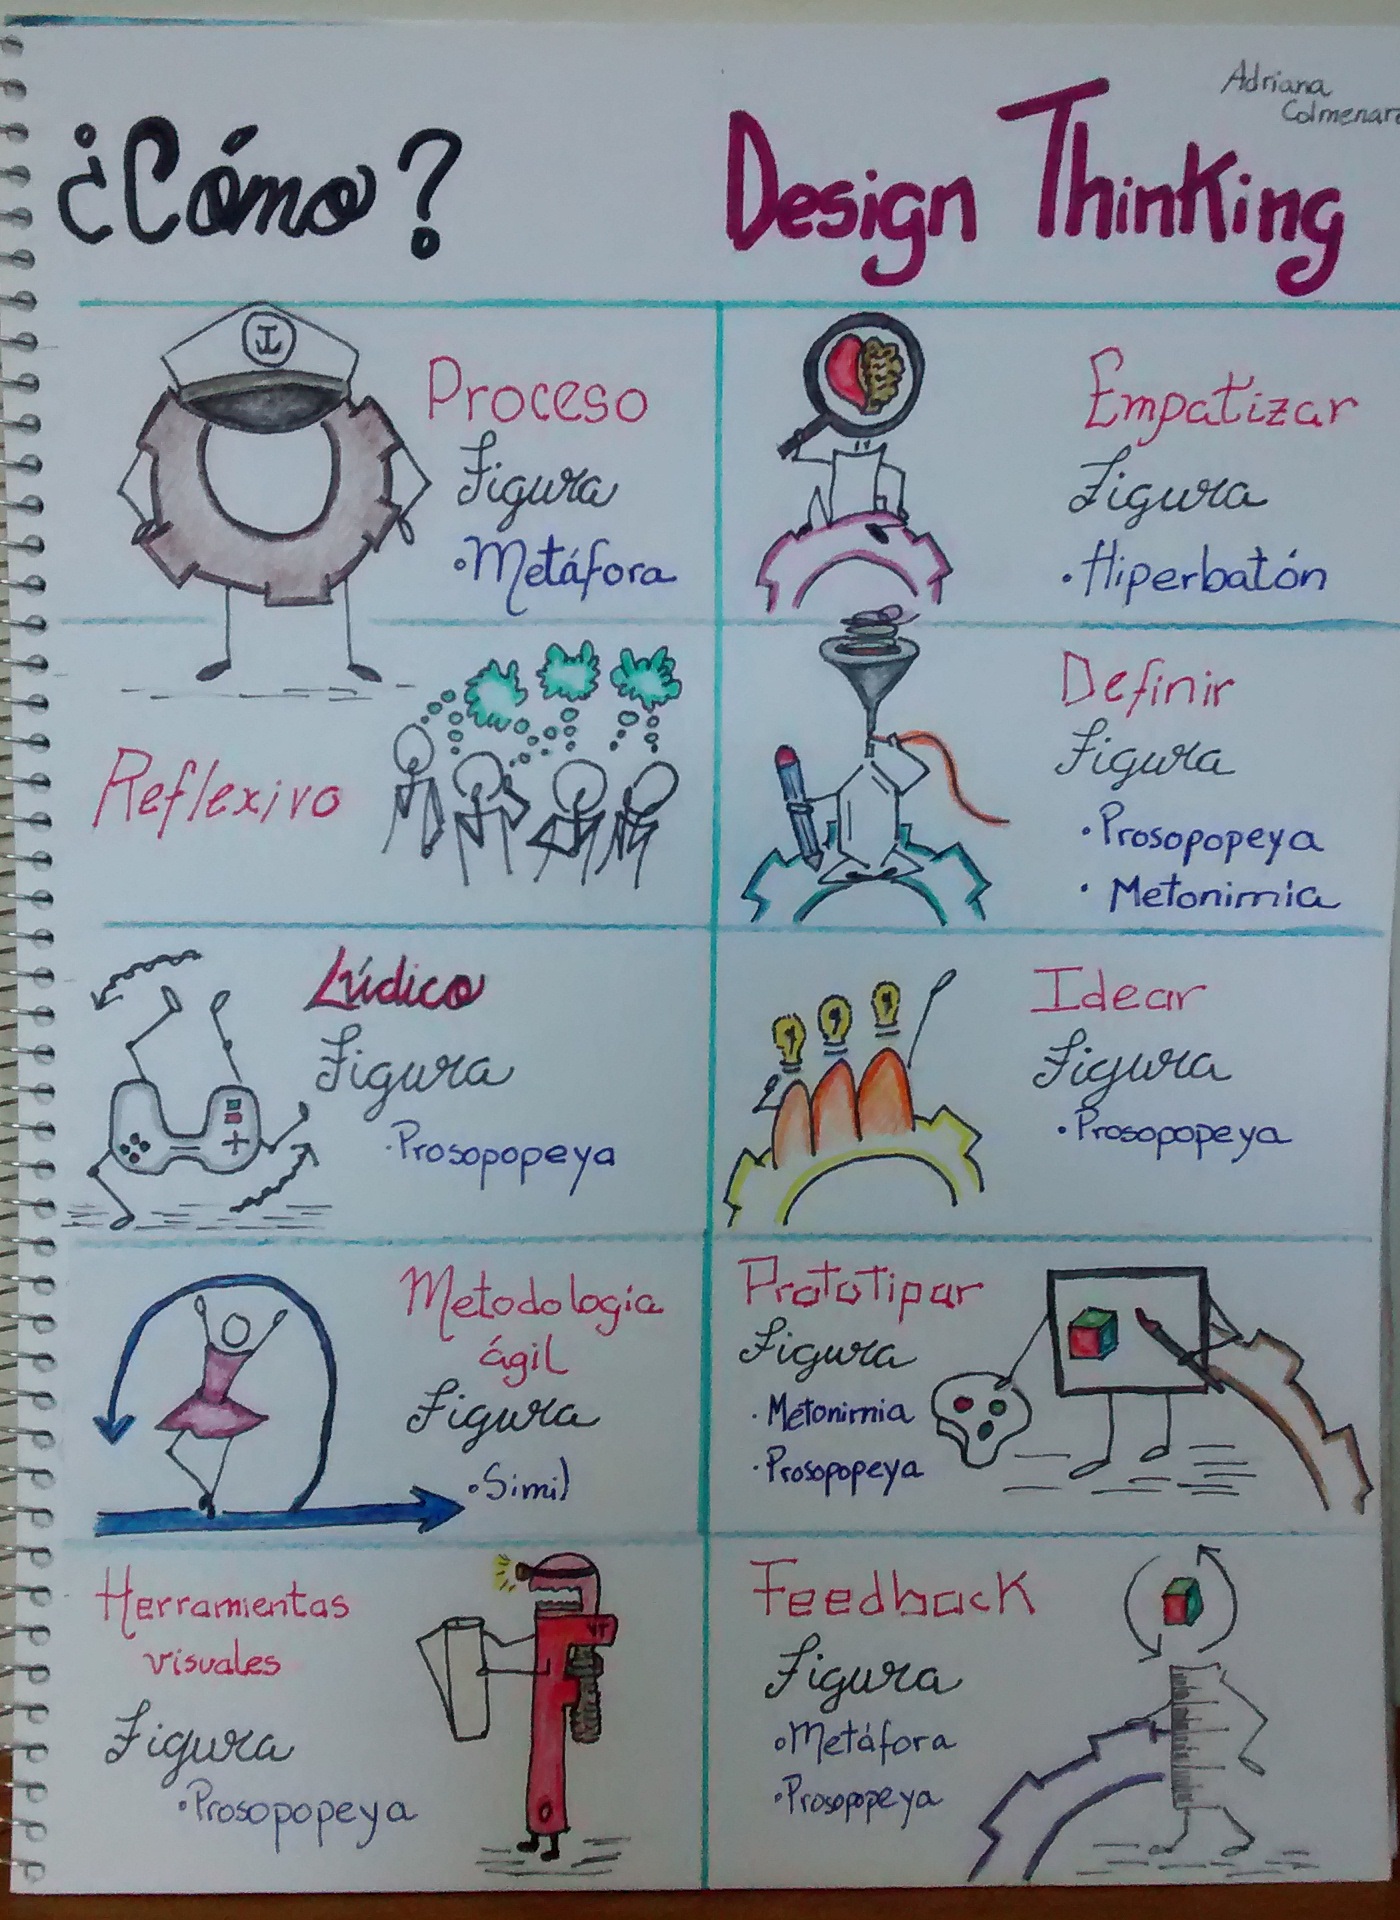 Adriana
¿Cómo?
Design Thinking
Proceso
Figura
•Metáfora
Reflexivo
Lúdico
Figura
·Prosopopeya
Metodología
ágil
Figura
•Simil
Herramientas
visuales
Figura
•Prosopopeya
Empatizar
Figura
•Hiperbatón
Definir
Figura
•Prosopopeya
• Metonimia
Idear
Figura
•Prosopopeya
Prototipar
Figura
· Metonimia
·Prosopopeya
Feedback
Figura
•Metáfora
•Prosopopeya